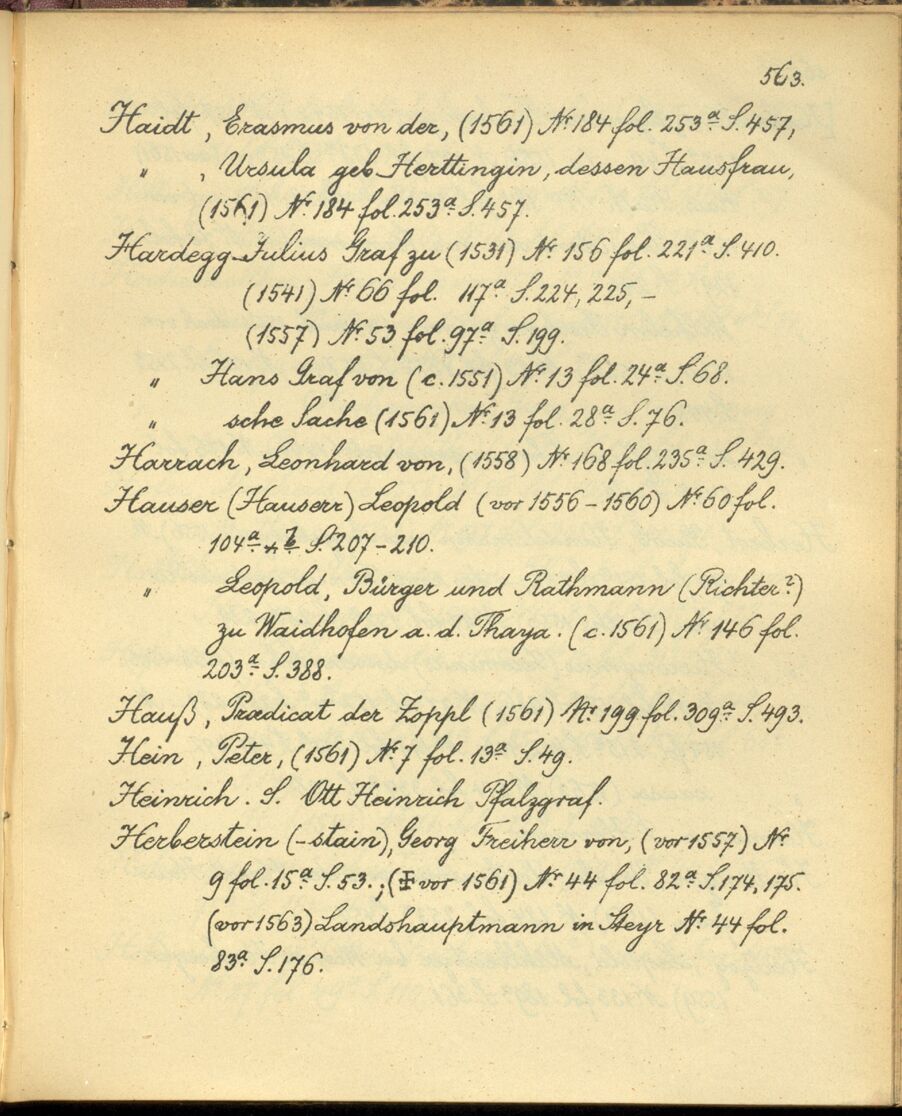 563.
Haidt, Erasmus von der, (1561) Nr. 184 fol. 253a S. 457,
" , Ursula geb. Herttingin, dessen Hausfrau,
(1561) Nr. 184 fol. 253a S. 457.
Hardegg Julius Graf zu (1531) Nr. 156 fol. 221a S. 410.
(1541) Nr. 66 fol. 117a S. 224, 225, –
(1557) Nr. 53 fol. 97a S. 199.
" Hans Graf von (c. 1551) Nr. 13 fol. 24a S. 68.
" sche Sache (1561) Nr. 13 fol. 28a S. 76.
Harrach, Leonhard von, (1558) Nr. 168 fol. 235a S. 429.
Hauser (Hauserr) Leopold (vor 1556 – 1560) Nr. 60 fol.
104a + b S. 207 – 210.
" Leopold, Bürger und Rathmann (Richter?)
zu Waidhofen a. d. Thaya. (c. 1561) Nr. 146 fol.
203a S. 388.
Hauß, Praedicat der Zoppl (1561) Nr. 199 fol. 309a S. 493.
Hein, Peter, (1561) Nr. 7 fol. 13a S. 49.
Heinrich. S. Ott Heinrich Pfalzgraf.
Herberstein (–stain), Georg Freiherr von, (vor 1557) Nr.
9 fol. 15a S. 53.; (✠ vor 1561) Nr. 44 fol. 82a S. 174, 175.
(vor 1563) Landshauptmann in Steyr Nr. 44 fol.
83a S. 176.